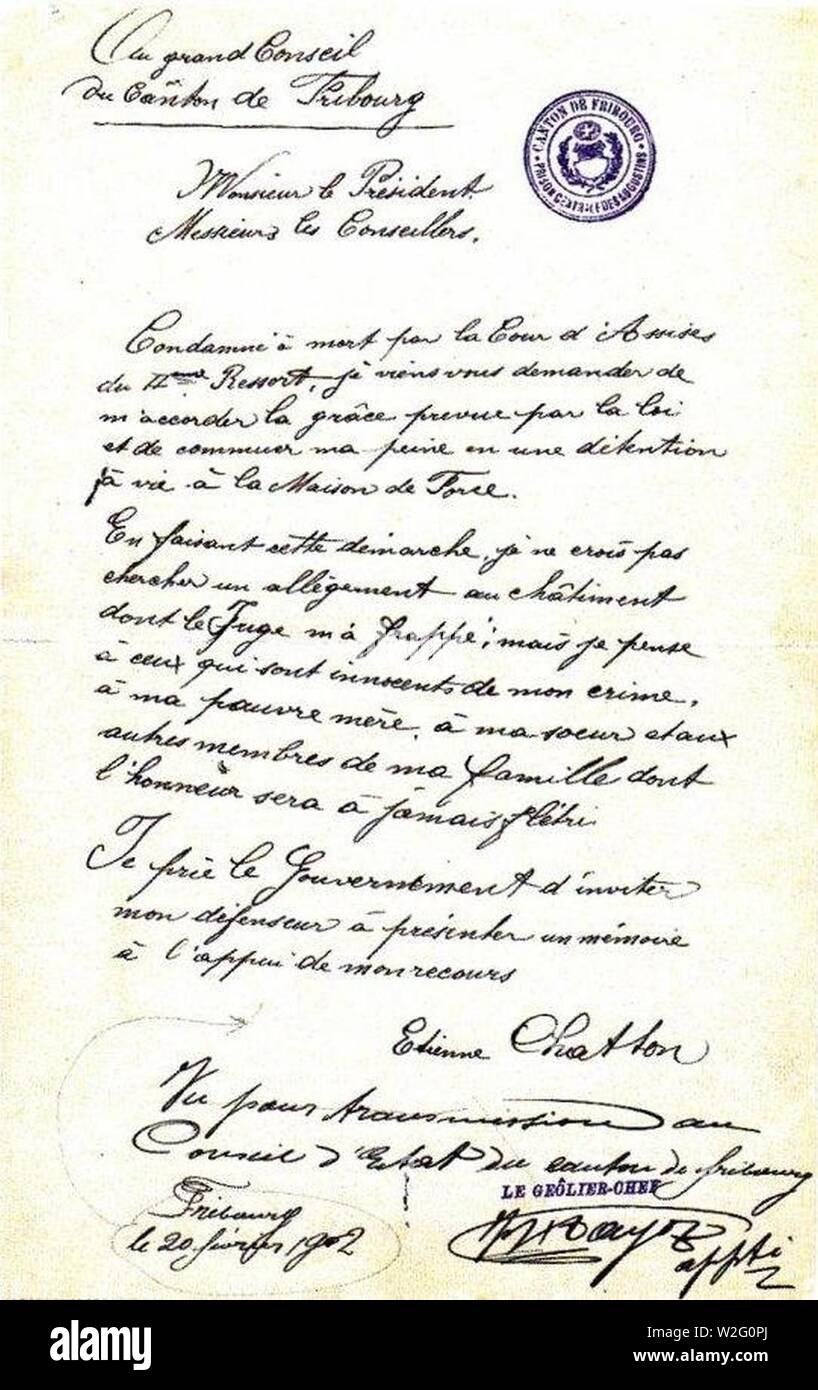 Au grand Conseil
du Canton de Fribourg
CANTON DE FRIBOURG
PRISON CENTRALE DES AUGUSTINS
Monsieur le Président
Messieurs les Conseillers,
Condamné à mort par la Cour d'Assises
du IIème Ressort, je viens vous demander de
m'accorder la grâce prevue par la loi
et de commuer ma peine en une détention
à vie à la Maison de Force.
En faisant cette démarche, je ne crois pas
chercher un allégement au châtiment
dont le Juge m'a frappé; mais je pense
à ceux qui sont innocents de mon crime,
à ma pauvre mère, à ma soeur et aux
autres membres de ma famille dont
l'honneur sera à jamais flétri.
Je prie le Gouvernement d'inviter
mon défenseur à présenter un mémoire
à l'appui de mon recours
Etienne Chatton
Vu pour transmission au
Conseil d'Etat du canton de fribourg
LE GEÔLIER-CHEF
Fribourg
le 20 février 1902
alamy
Image ID: W2G0PJ
www.alamy.com